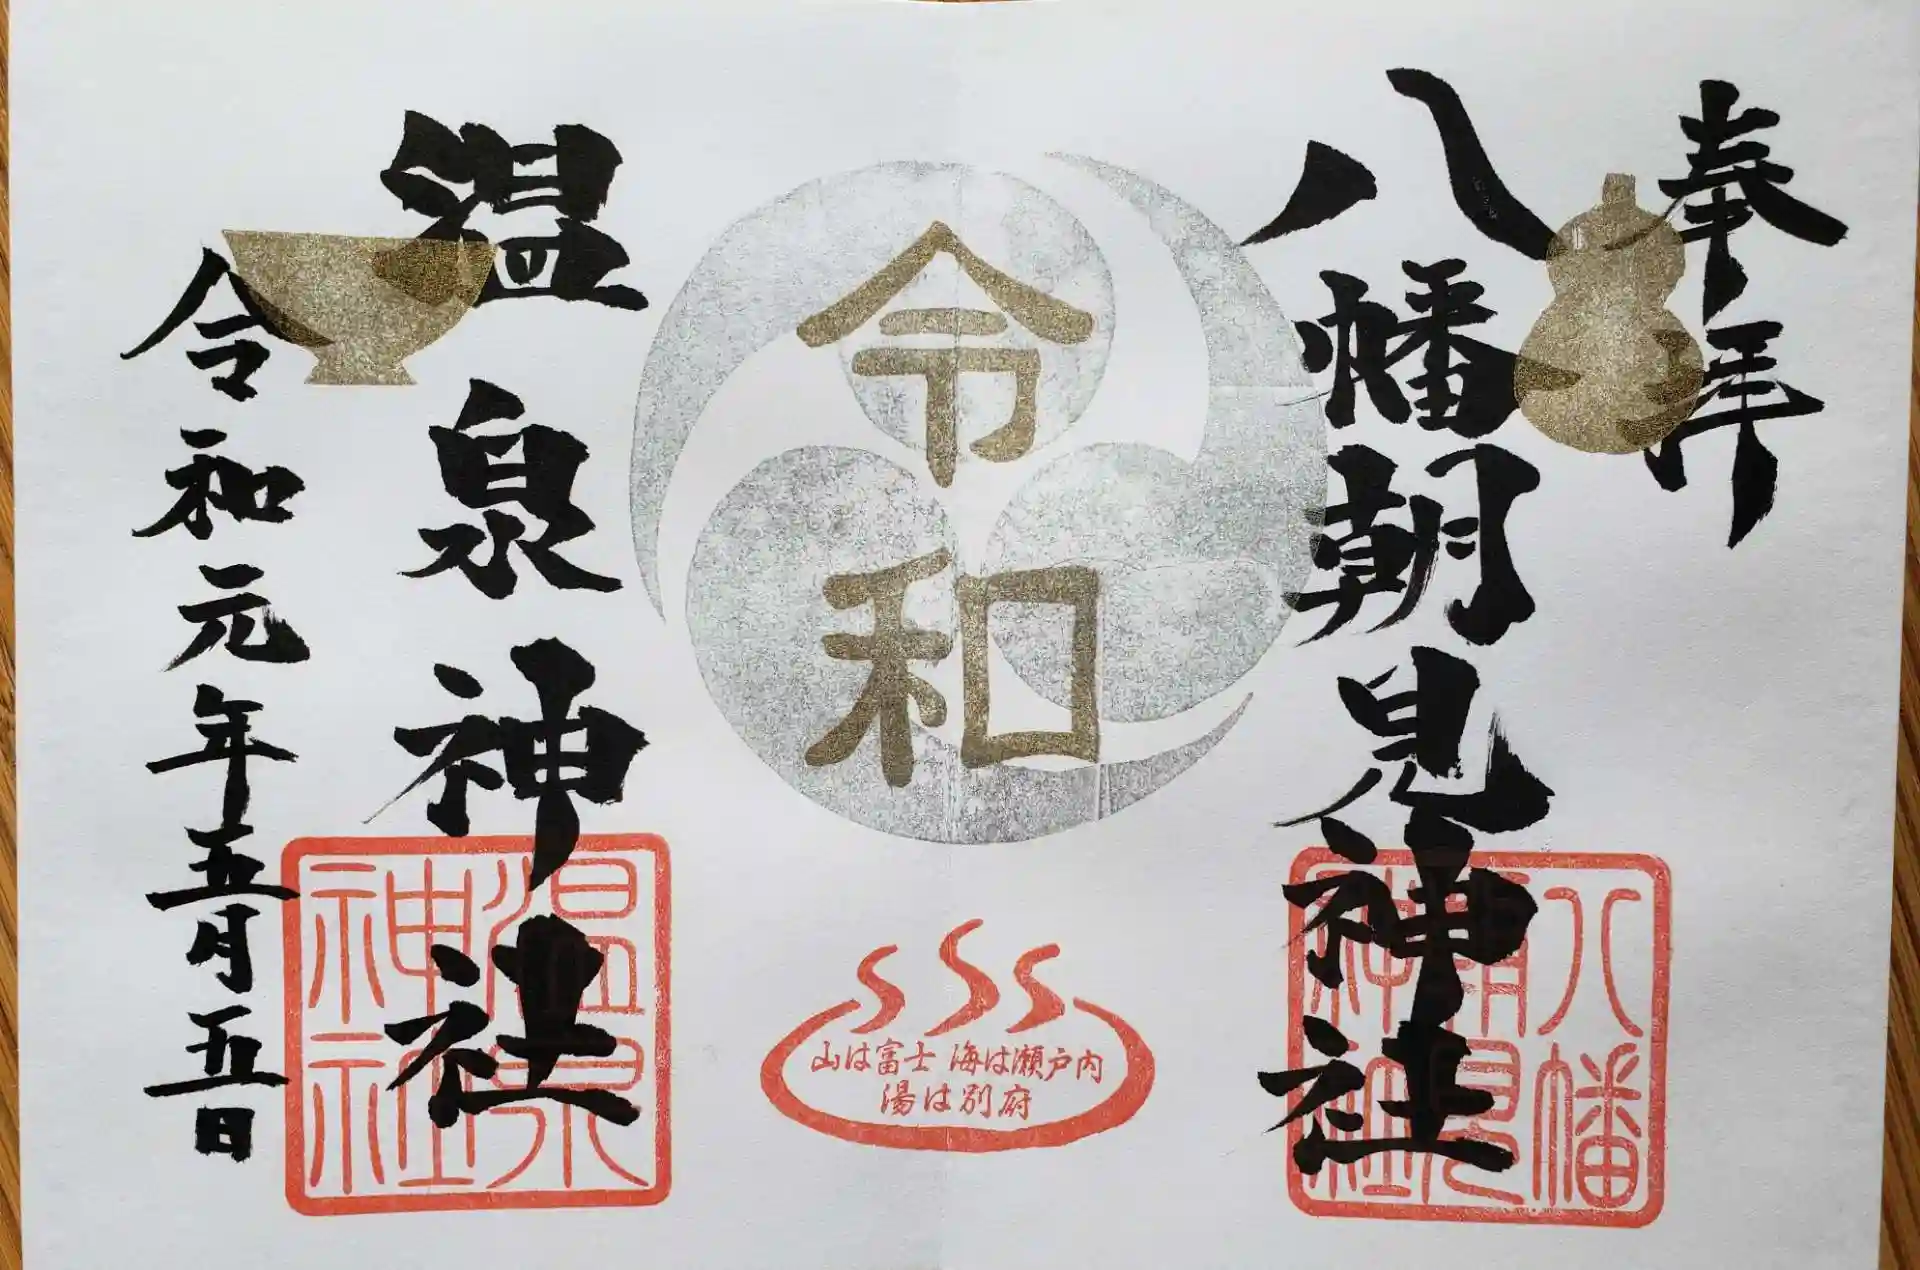 奉拝
八幡朝見神社
八幡朝見神社
令和
山は富士 海は瀬戸内
湯は別府
温泉神社
温泉神社
令和元年五月五日